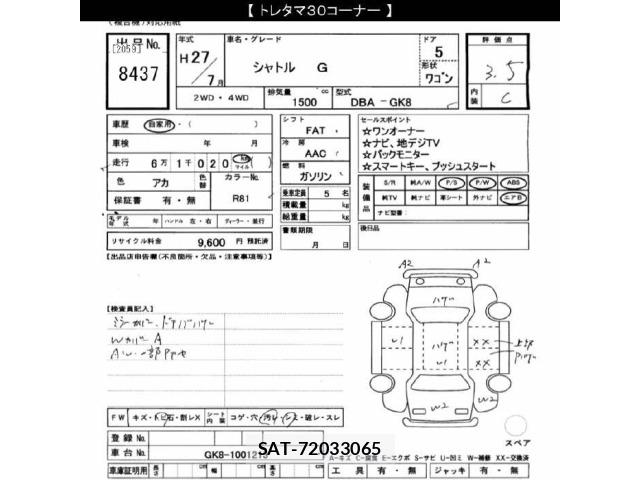 【 トレタマ30コーナー 】
(複合機)対応用紙
出品No.
[2059]
8437
年式
H 27
7月
車名・グレード
シャトル G
ドア
5
形状
ワゴン
評価点
3.5
内装
C
2WD・4WD
排気量
1500 cc
型式
DBA - GK8
車歴 自家用・( )
車検 年 月
走行 6万1千020 km マイル
色 アカ
色替
カラーNo.
R81
保証書 有・無
モデル年式 年
ハンドル 左・右
ディーラー・並行
リサイクル料金 9,600 円 預託済
シフト
FAT
冷房
AAC
燃料
ガソリン
乗車定員 5 名
積載量 kg
総重量 kg
書類期限
月 日
セールスポイント
☆ワンオーナー
☆ナビ、地デジTV
☆バックモニター
☆スマートキー、プッシュスタート
装備品
S/R 純A/W P/S P/W ABS
純TV 純ナビ 革シート 外ナビ エアB
ナビ型番
後日品
【出品店申告欄(不良箇所・欠品・注意事項等)】
A2
A2
ハゲ
【検査員記入】
WカバA
U1
ハゲ
U1
XX
XX
W2
W2
スペア
FW キズ・トビ石・割レX
シート内張
コゲ・穴・汚レ・シミ・破レ・スレ
登録No.
車台No.
GK8-1001215
SAT-72033065
A-キズ C-腐食 E-エクボ S-サビ U-凹ミ W-補修 XX-交換済
車庫証明用
長さ cm
幅 cm
高さ cm
工具 有・無
ジャッキ 有・無